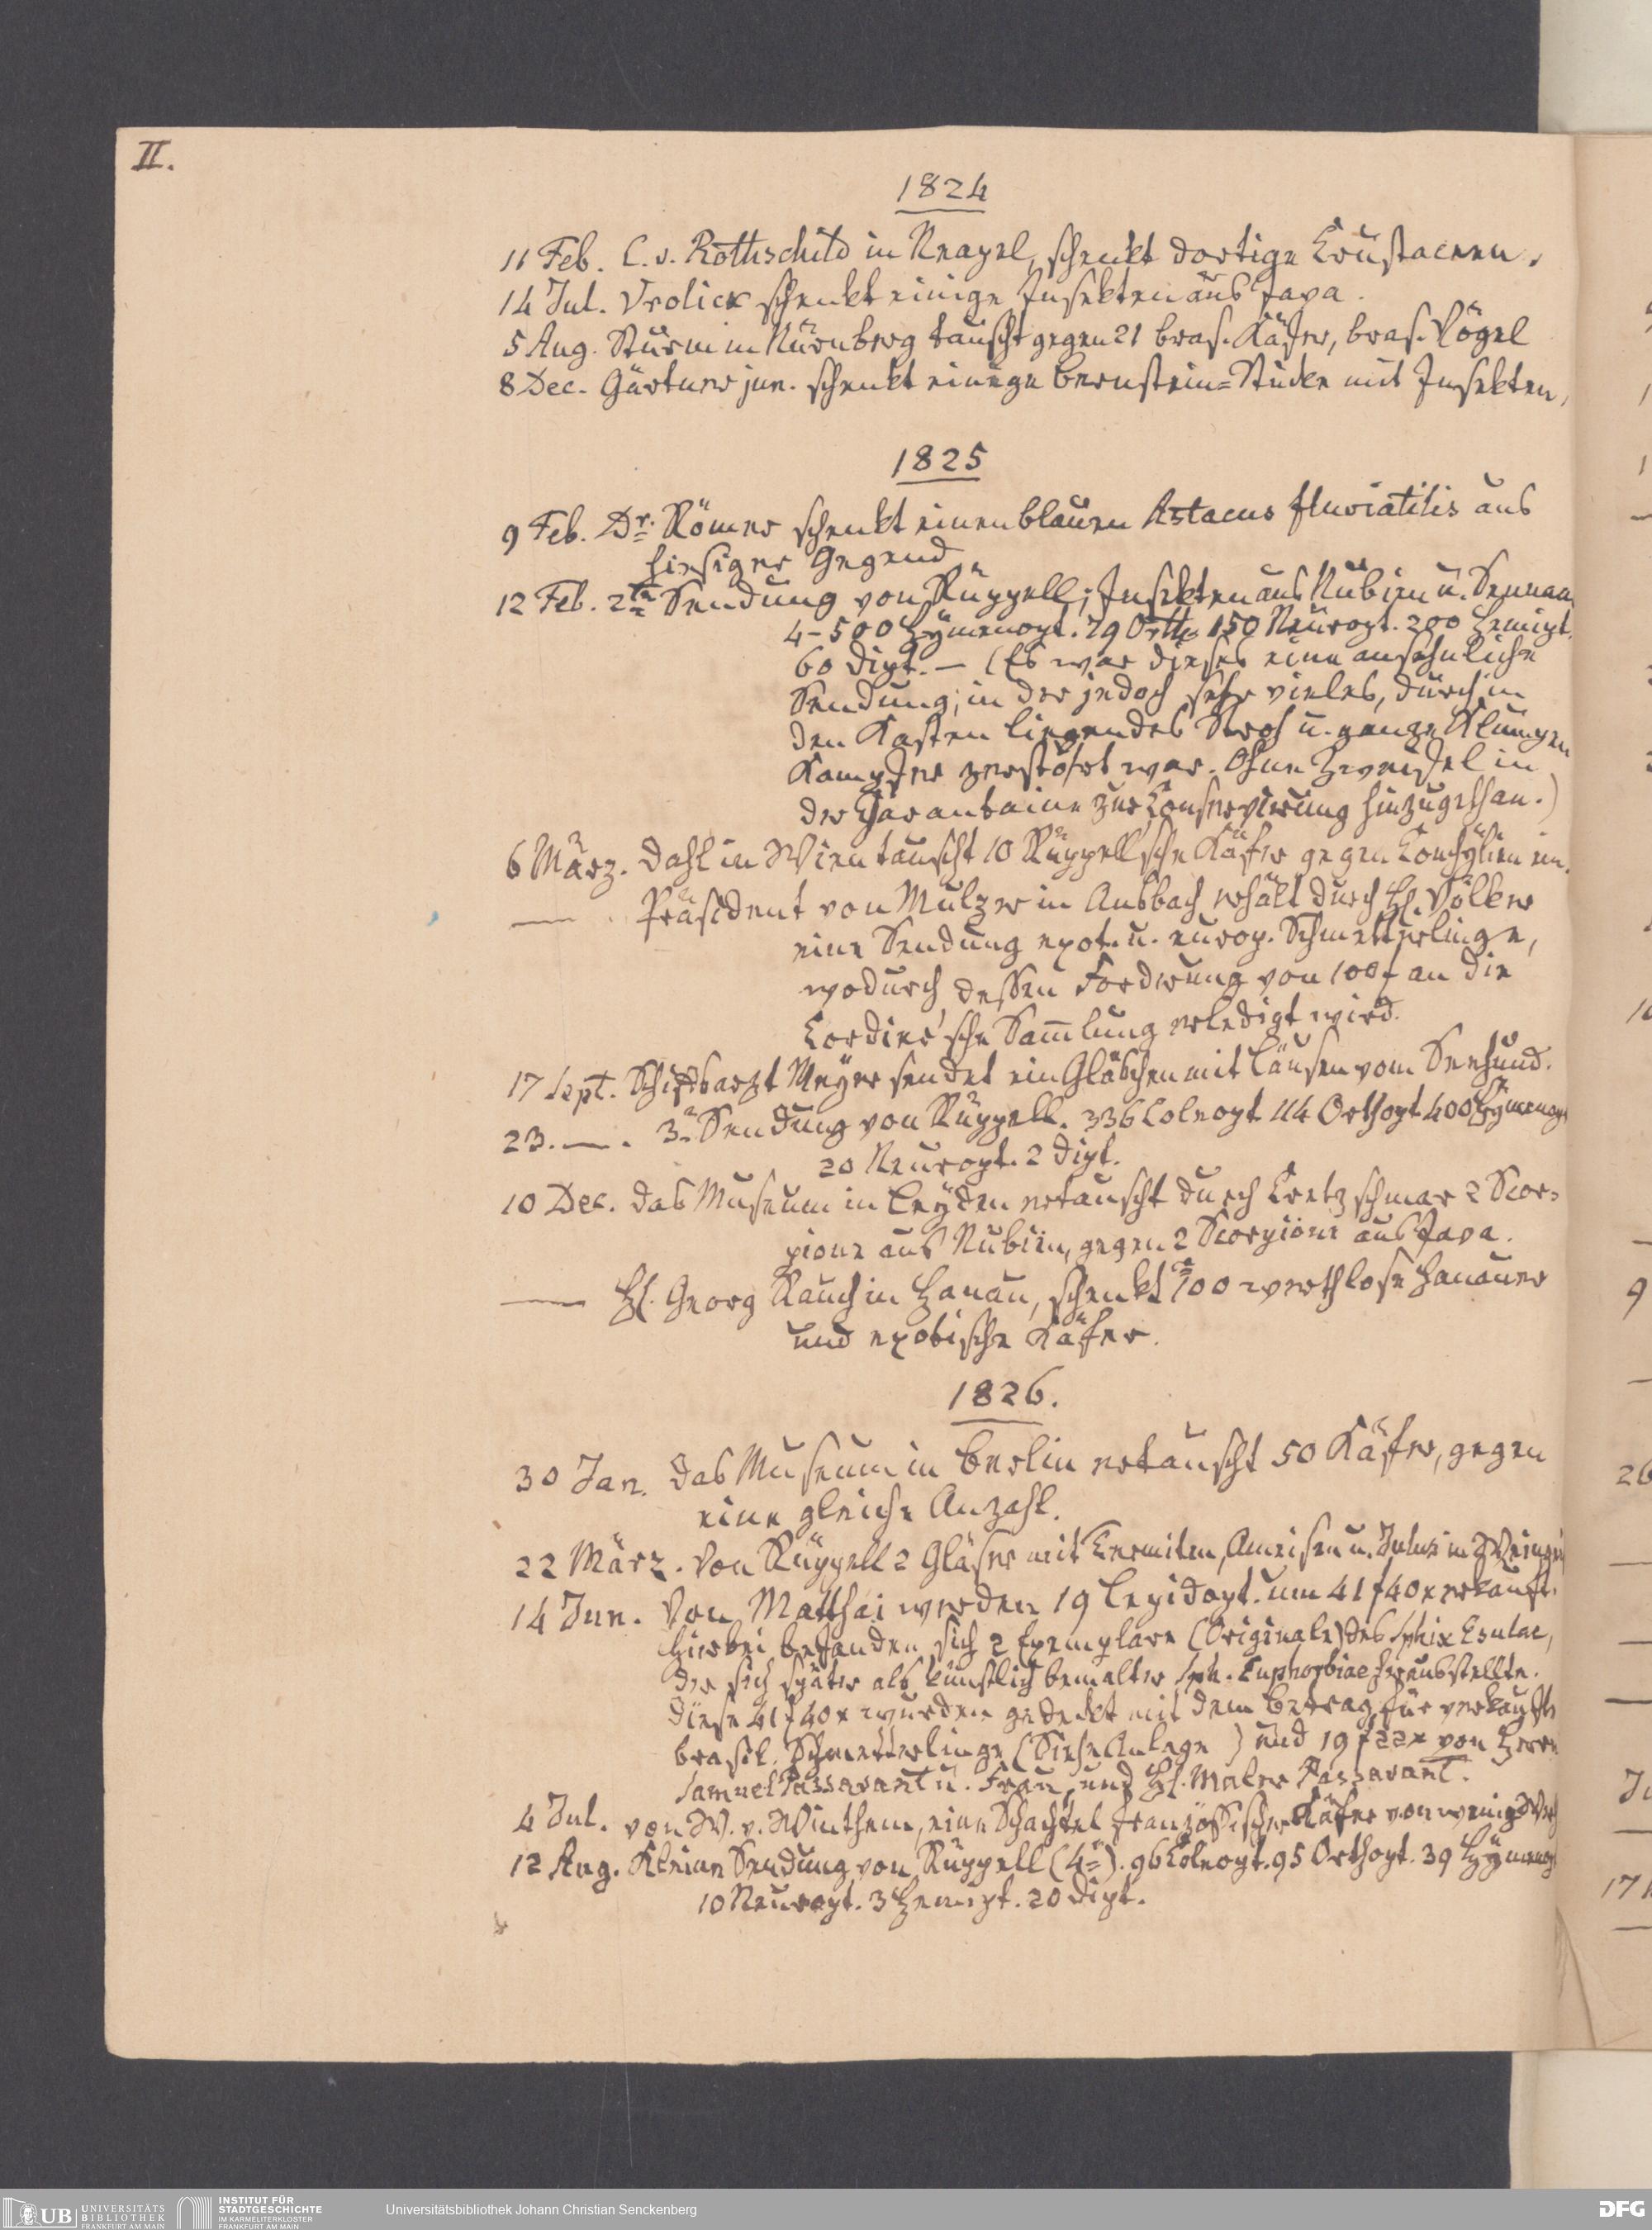 II.
1824
11 Feb. C. v. Rothschild in Neapel, schenkt dortige Crustaceen.
14 Jul. Vrolick schenkt einige Insekten aus Java.
5 Aug. Sturm in Nürnberg tauscht gegen 21 bras. Käfer, bras. Vögel
8 Dec. Gärtner jun. schenkt einige Bernstein=Stücke mit Insekten,
1825
9 Feb. Dr. Römer schenkt einen blauen Astacus fluviatilis aus
hiesiger Gegend
12 Feb. 2te Sendung von Rüppell; Insekten aus Nubien u. Sennaa
4–500 Hymenopt. 79 Orth. 150 Neuropt. 200 Hemipt.
60 Dipt. — (Es war dieses eine ansehnliche
Sendung; in der jedoch sehr vieles, durch in
den Kasten liegendes Stroh u. ganze Klumpen
Kampfer zerstöhrt war. Ohne Zweifel in
der Quarantaine zur Conservirung hinzugethan.)
6 März. Dahl in Wien tauscht 10 Rüppell'sche Käfer gegen Conchylien ein.
— . Präsident von Mulzer in Ansbach erhält durch H. Völker
eine Sendung exot. u. europ. Schmetterlinge,
wodurch dessen Forderung von 100f an die
Cordier'sche Sammlung erledigt wird.
17 Sept. Schiffsarzt Meyer sendet ein Gläschen mit Läusen vom Seehund.
23. — . 3e Sendung von Rüppell. 336 Coleopt 44 Orthopt 400 Hymenopt
20 Neuropt. 2 Dipt.
10 Dec. Das Museum in Leyden ertauscht durch Cretzschmar 2 Scor=
pione aus Nubien, gegen 2 Scorpione aus Java.
— H. Georg Rauch in Hanau, schenkt 700 werthlose Hanauer
und exotische Käfer.
1826.
30 Jan. Das Museum in Berlin ertauscht 50 Käfer, gegen
eine gleiche Anzahl.
22 März. Von Rüppell 2 Gläser mit Termiten, Ameisen u. Julus in Weingeist
14 Jun. Von Matthäi werden 19 Lepidopt. um 41f 40x erkauft.
Hierbei befanden sich 2 Exemplare (Originale) des Sphix Esulae,
der sich später als künstlich bemalter Sph. Euphorbiae herausstellte.
Diese 41f 40x wurden gedeckt mit dem Betrag für verkaufte
brasil. Schmetterlinge (Siehe Anlage ) und 19f 22x von Herrn
Samuel Passavant u. Frau, und H. Maler Passavant.
4 Jul. von W. v. Winthem, eine Schachtel französischer Käfer von wenig Werth
12 Aug. Kleine Sendung von Rüppell (4e). 96 Coleopt. 95 Orthopt. 39 Hymenopt
10 Neuropt. 3 Hemipt. 20 Dipt.
UB UNIVERSITÄTS
BIBLIOTHEK
FRANKFURT AM MAIN
INSTITUT FÜR
STADTGESCHICHTE
IM KARMELITERKLOSTER
FRANKFURT AM MAIN
Universitätsbibliothek Johann Christian Senckenberg
DFG